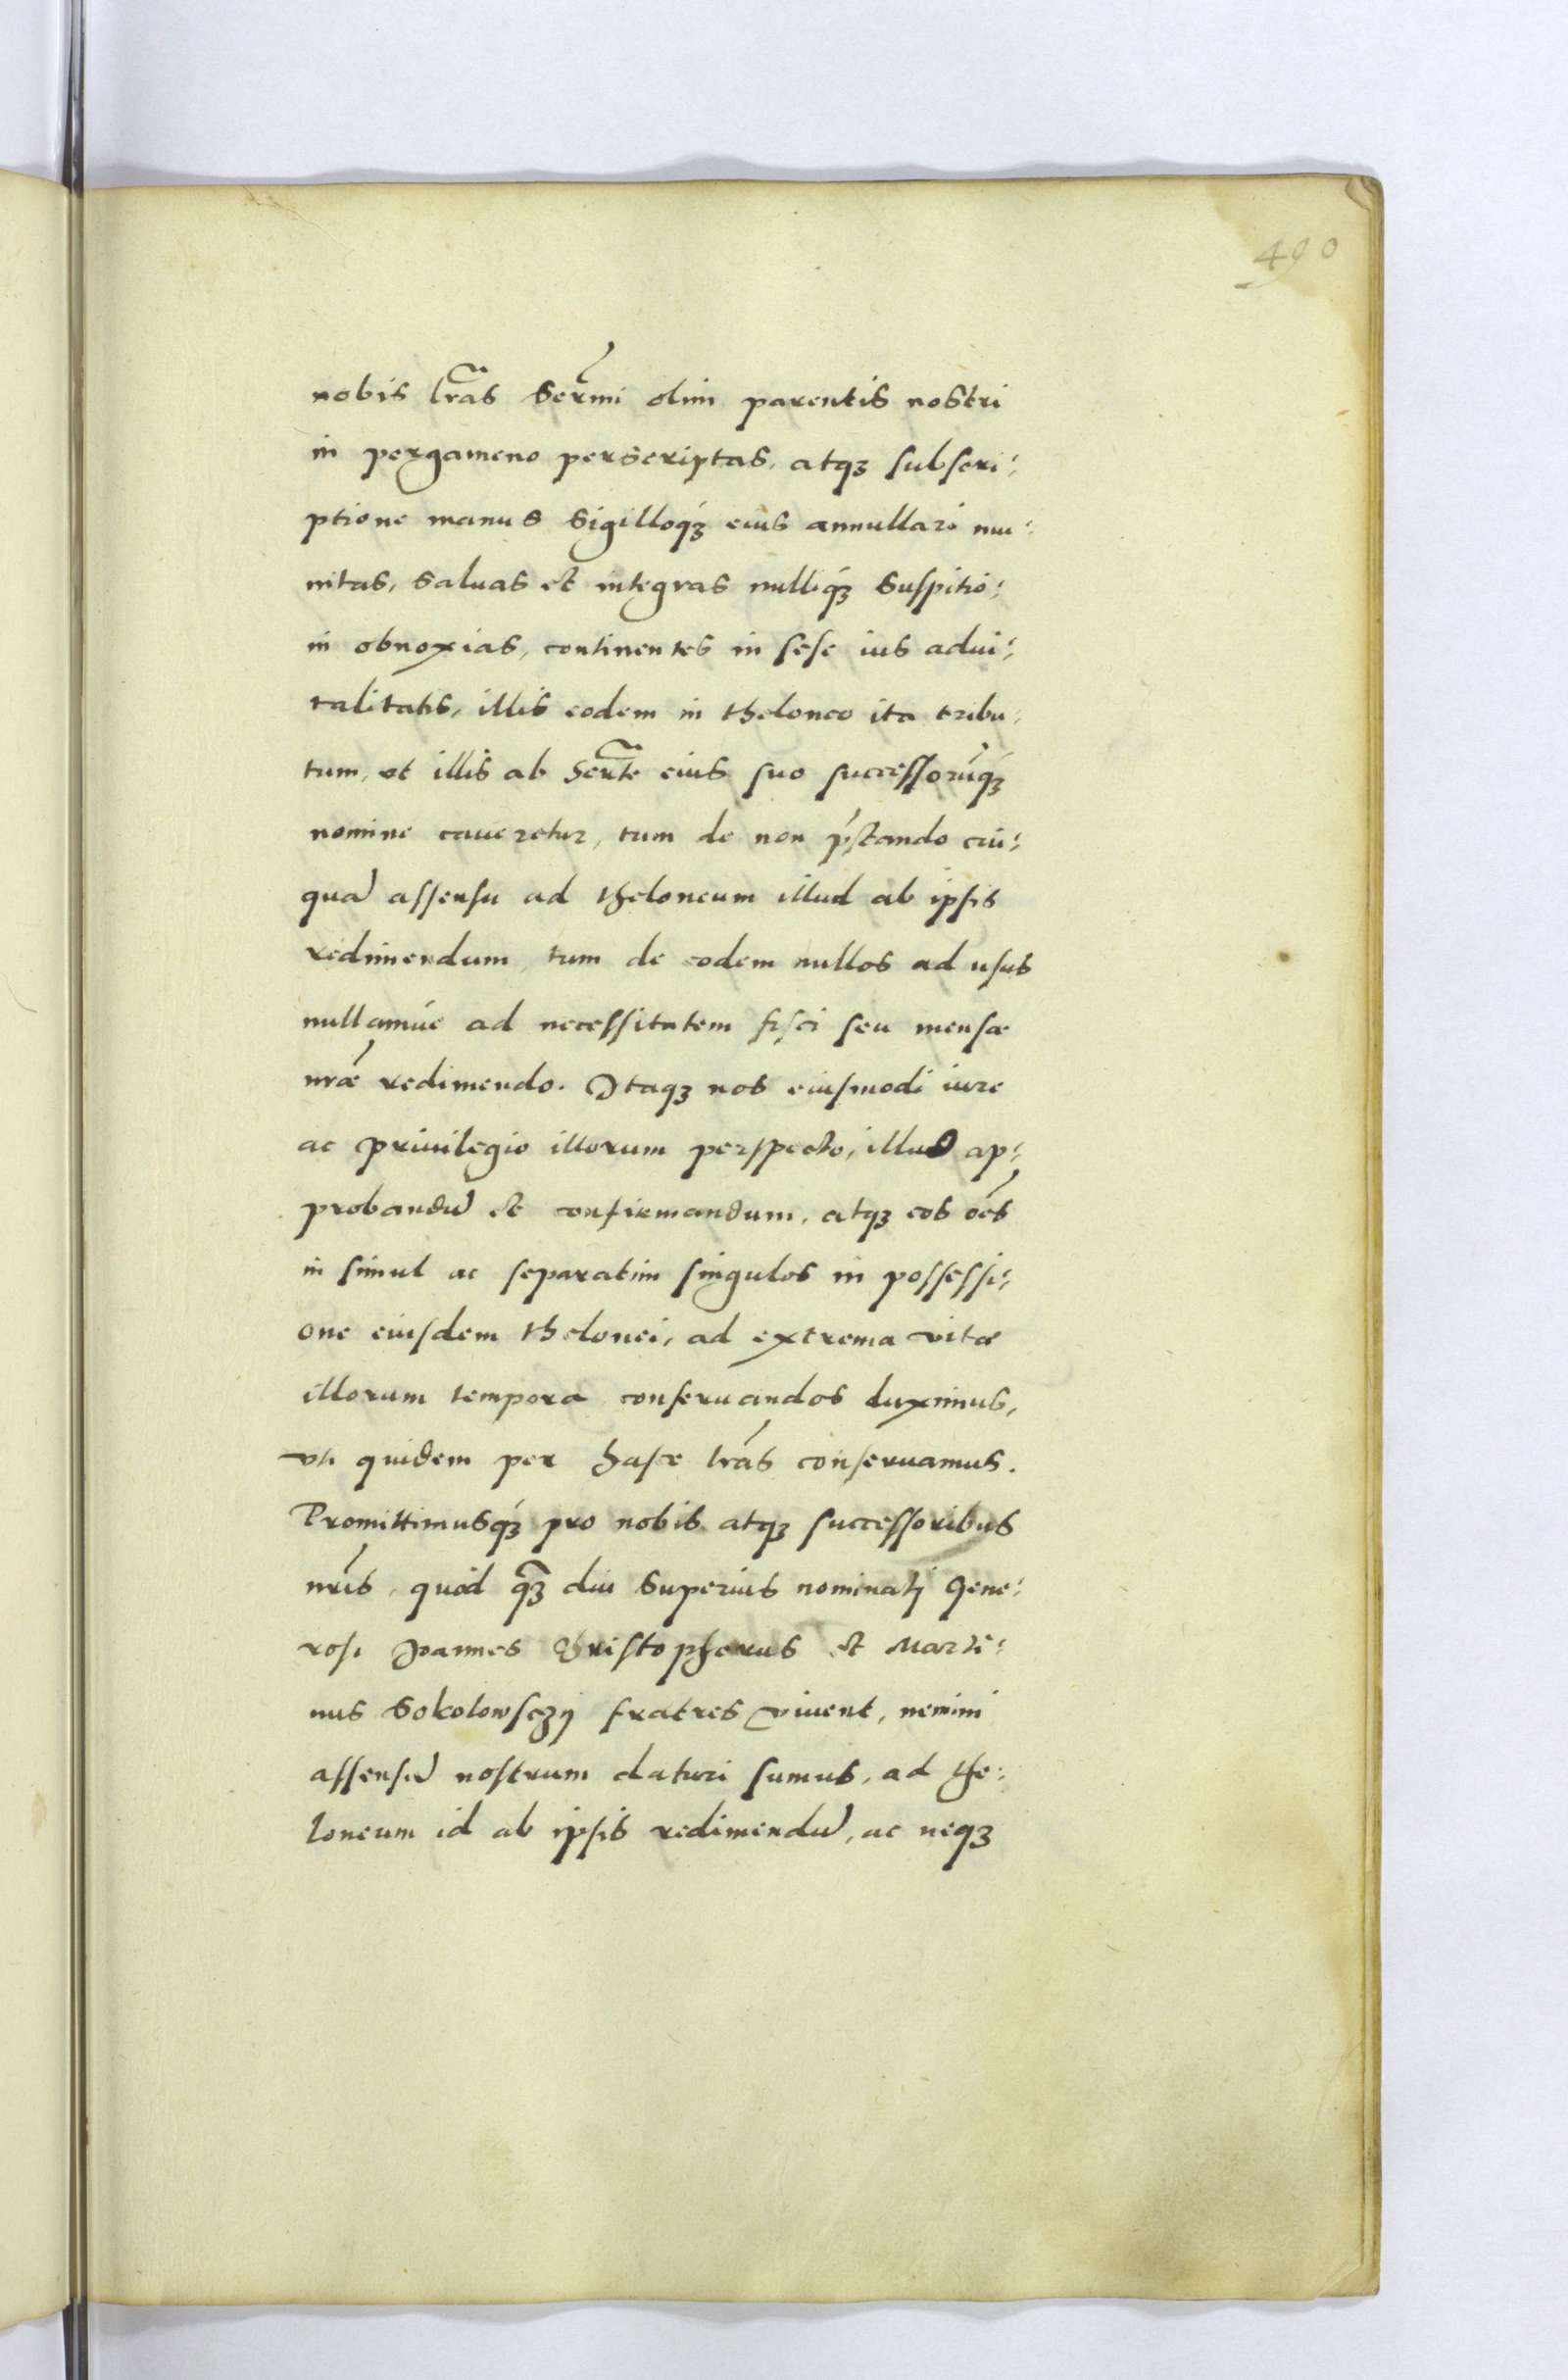 490
nobis lr̃as Serm̃i olim parentis nostri
in pergameno perscriptas, atqꝫ subscri⸗
ptione manus sigilloqꝫ́ eius annullari mu⸗
nitas, saluas et integras nulliqꝫ́ suspitio⸗
ni obnoxias, continentes in sese ius adui⸗
talitatis, illis eodem in theloneo ita tribu⸗
tum, vt illis ab Sert̃e eius suo successorũqꝫ́
nomine caueretur, tum de non p̃stando cui⸗
quã assensu ad theloneum illud ab ipsis
redimendum, tum de eodem nullos ad usus
nullamúe ad necessitatem fisci seu mensæ
nr̃æ redimendo. Itaqꝫ nos eiusmodi iure
ac priuilegio illorum perspecto, illud ap⸗
probandũ et confirmandum, atqꝫ eos oẽs
in simul ac separatim singulos in possessi⸗
one eiusdem thelonei, ad extrema vitæ
illorum tempora conseruandos duximus,
vti quidem per hasce lr̃as conseruamus.
Promittimusqꝫ́ pro nobis atqꝫ successoribus
nr̃is, quòd qꝫ̃ diu superius nominati Gene⸗
rosi Joannes Christopherus et Marti⸗
nus Sokolowsczÿ fratres viuent, nemini
assensũ nostrum daturi sumus, ad the⸗
loneum id ab ipsis redimendũ, ac neqꝫ